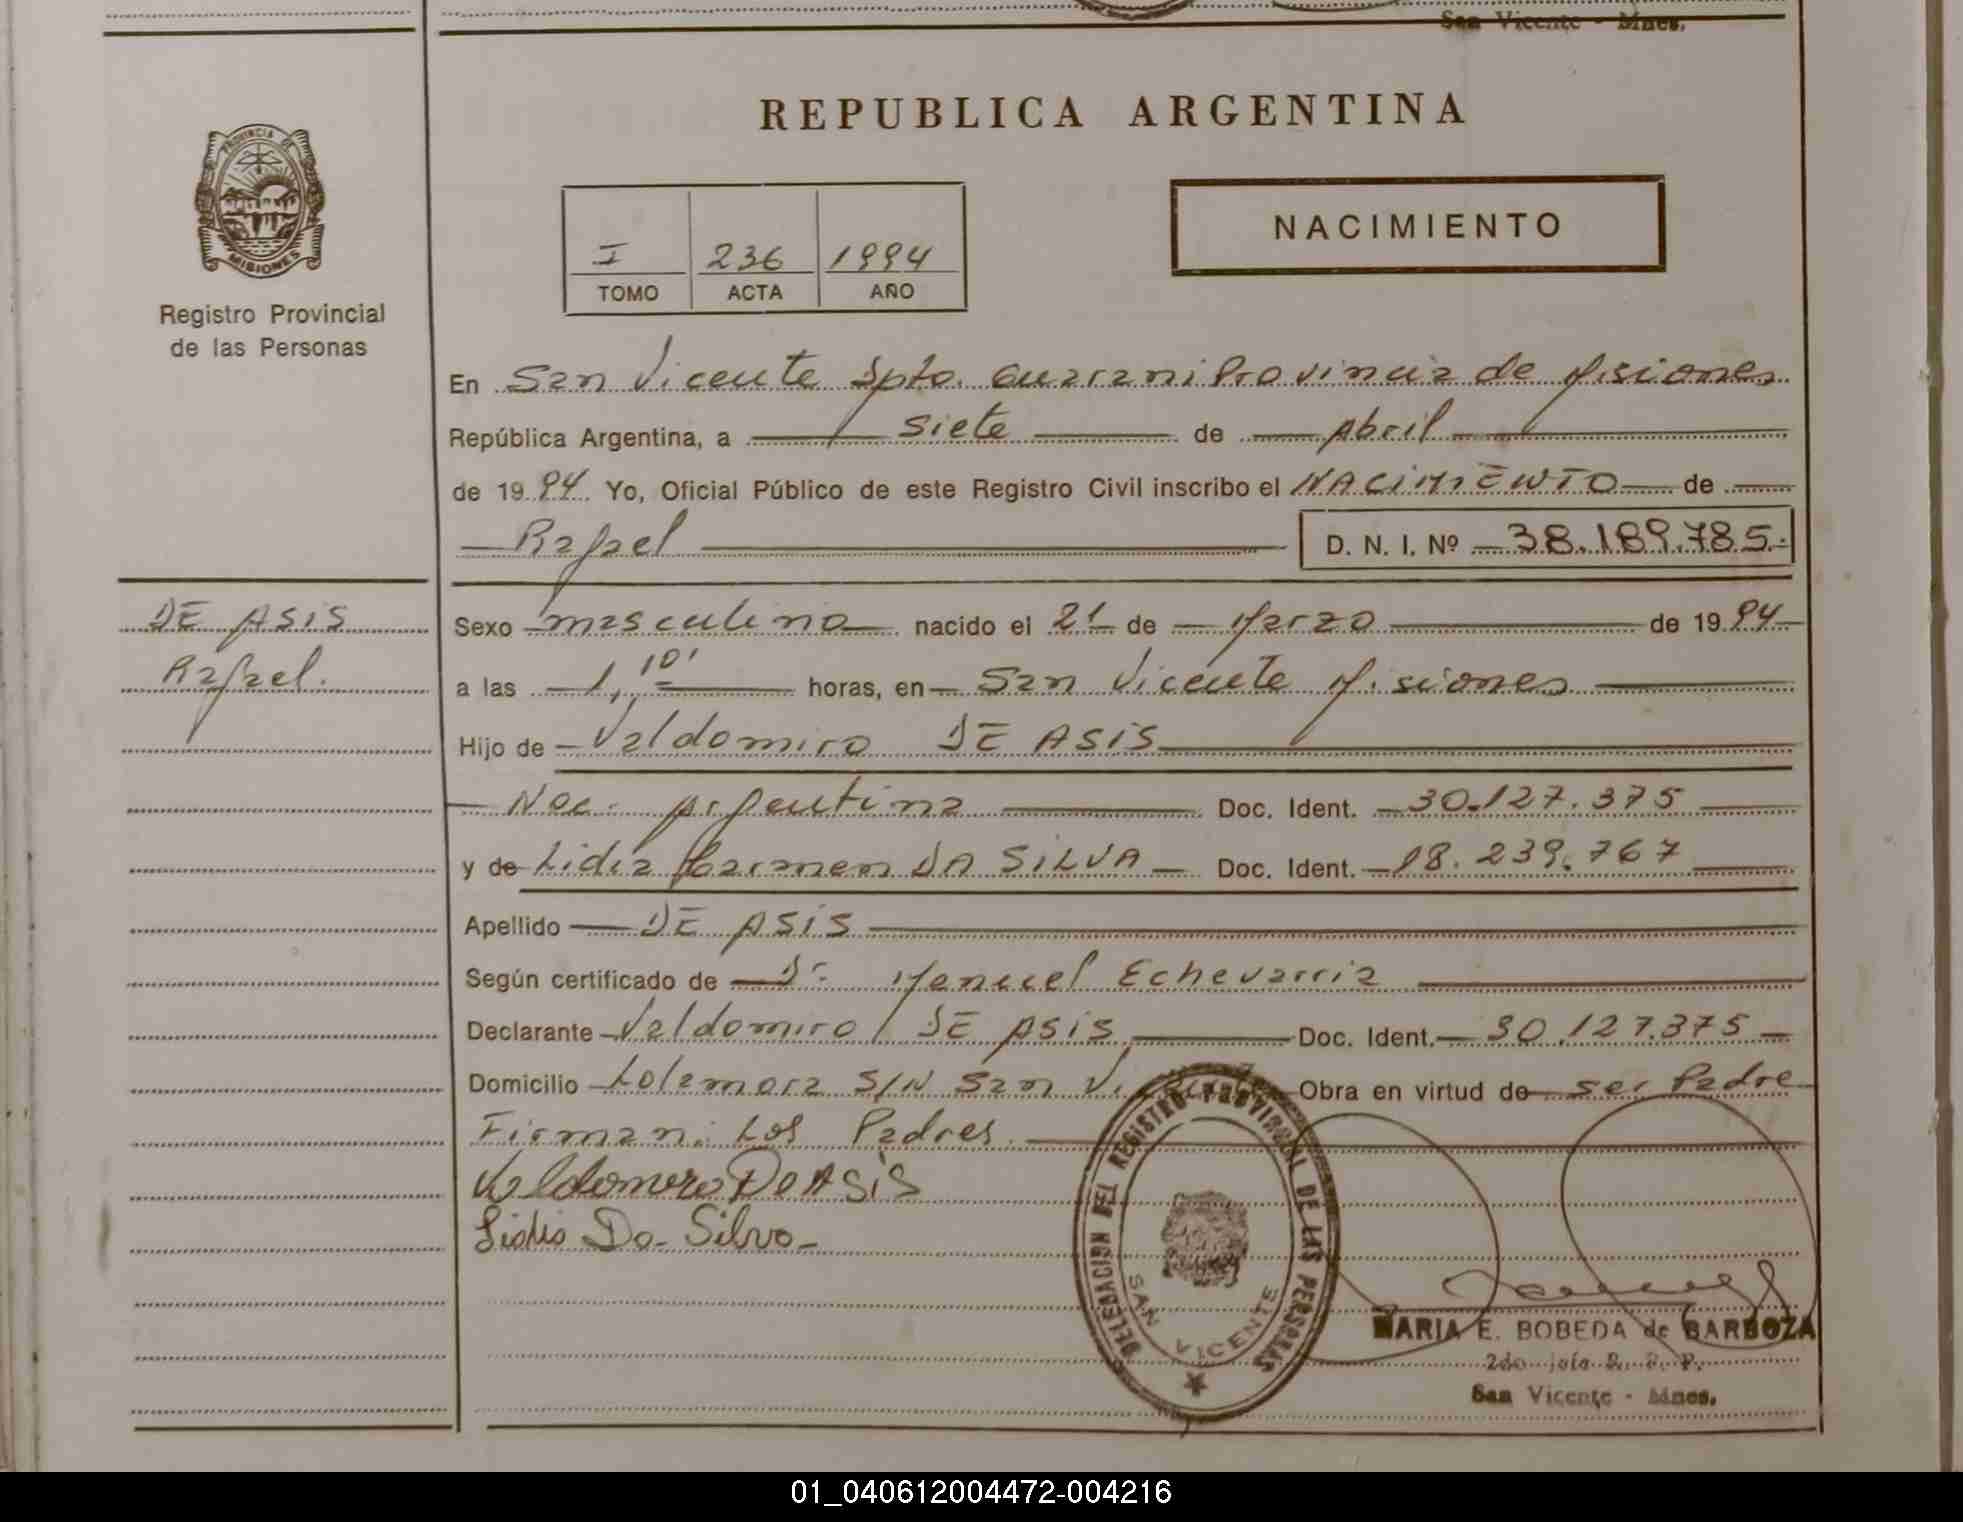 San Vicente - Mnes.
REPUBLICA ARGENTINA
PROVINCIA DE
MISIONES
Registro Provincial
de las Personas
I 236 1994
TOMO ACTA AÑO
NACIMIENTO
En San Vicente Dpto. Guarani Provincia de Misiones
República Argentina, a siete de Abril
de 1994 Yo, Oficial Público de este Registro Civil inscribo el NACIMIENTO de
Rafael D. N. I. Nº 38.189.785.
DE ASIS
Rafael.
Sexo masculino nacido el 21 de Marzo de 1994
a las 1,10' horas, en San Vicente Misiones
Hijo de Valdomiro DE ASIS
Nac. Argentina Doc. Ident. 30.127.375
y de Lidia Carmen DA SILVA Doc. Ident. 18.239.767
Apellido DE ASIS
Según certificado de Dr. Manuel Echevarria
Declarante Valdomiro DE ASIS Doc. Ident. 30.127.375
Domicilio S/N San Vicente Obra en virtud de ser Padre
Firman: Los Padres
Valdomiro De ASiS
Lidia Da Silva
DELEGACION DEL REGISTRO PROVINCIAL DE LAS PERSONAS
SAN VICENTE
MARIA E. BOBEDA de BARBOZA
2do jefe R. P. P.
San Vicente - Mnes.
01_040612004472-004216